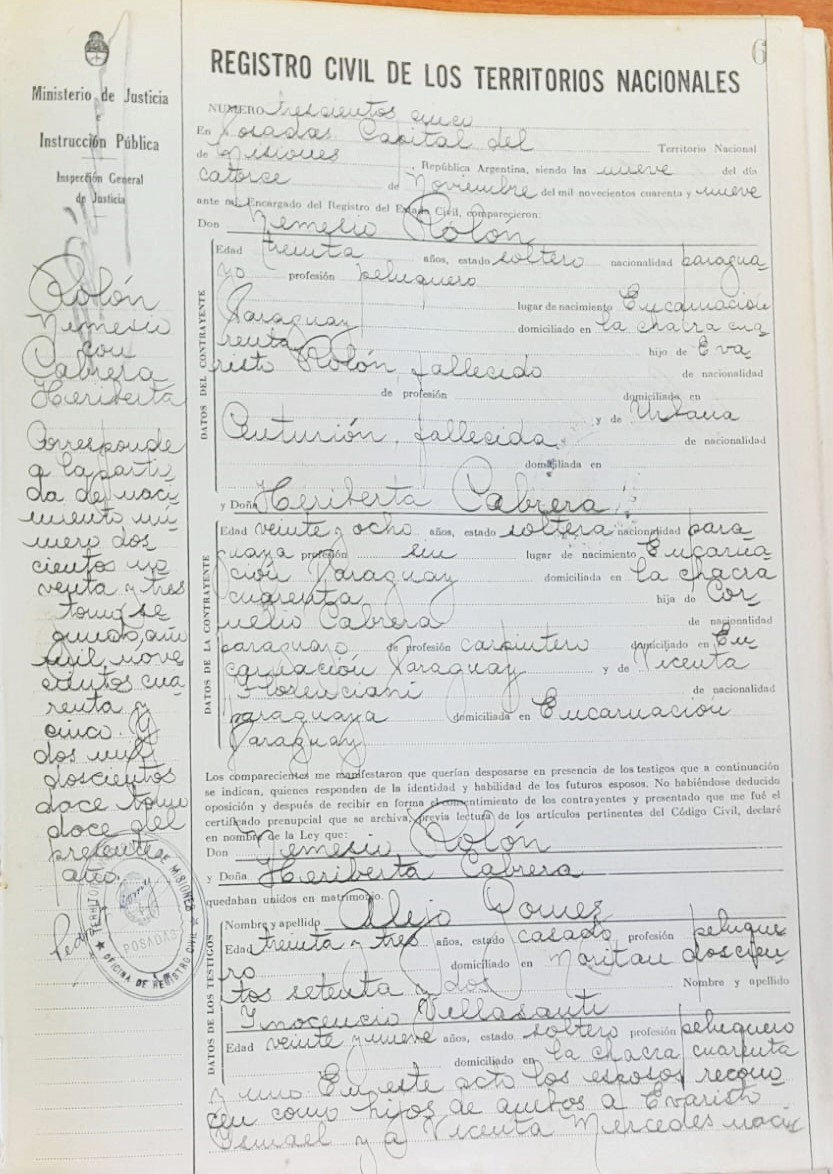 6
Ministerio de Justicia
e
Instrucción Pública
Inspección General
de Justicia
Rolón
Nemesio
con
Cabrera
Heriberta
Corresponde
a la parti
da de naci
miento nú
mero dos
cientos no
venta y tres
tomo se
gundo, año
mil nove
cientos cua
renta y
cinco. Y
dos mil
doscientos
doce tomo
doce del
presente
año.
TERRITORIO DE MISIONES
POSADAS
OFICINA DE REGISTRO CIVIL
REGISTRO CIVIL DE LOS TERRITORIOS NACIONALES
NUMERO trescientos cinco
En Posadas Capital del Territorio Nacional
de Misiones, República Argentina, siendo las nueve del día
catorce de Noviembre del mil novecientos cuarenta y nueve
ante mí, Encargado del Registro del Estado Civil, comparecieron:
Don Nemesio Rolón
DATOS DEL CONTRAYENTE
Edad treinta años, estado soltero nacionalidad paragua
yo profesión peluquero
lugar de nacimiento Encarnación
Paraguay domiciliado en la chacra cua
renta hijo de Eva
risto Rolón, fallecido de nacionalidad
de profesión domiciliado en
y de Urbana
Centurión, fallecida de nacionalidad
domiciliada en
y Doña Heriberta Cabrera
DATOS DE LA CONTRAYENTE
Edad veinte y ocho años, estado soltera nacionalidad para
guaya profesión sin lugar de nacimiento Encarna
ción Paraguay domiciliada en la chacra
cuarenta hija de Cor
nelio Cabrera de nacionalidad
paraguayo de profesión carpintero domiciliado en En
carnación Paraguay y de Vicenta
Florenciani de nacionalidad
paraguaya domiciliada en Encarnación
Paraguay
Los comparecientes me manifestaron que querían desposarse en presencia de los testigos que a continuación
se indican, quienes responden de la identidad y habilidad de los futuros esposos. No habiéndose deducido
oposición y después de recibir en forma el consentimiento de los contrayentes y presentado que me fué el
certificado prenupcial que se archiva, previa lectura de los artículos pertinentes del Código Civil, declaré
en nombre de la Ley que:
Don Nemesio Rolón
y Doña Heriberta Cabrera
quedaban unidos en matrimonio.
DATOS DE LOS TESTIGOS
Nombre y apellido Alejo Gomez
Edad treinta y tres años, estado casado profesión peluque
ro domiciliado en doscien
tos setenta y dos Nombre y apellido
Inocencio Villasanti
Edad veinte y nueve años, estado soltero profesión peluquero
domiciliado en la chacra cuarenta
y uno En este acto los esposos recono
cen como hijos de ambos a Evaristo
Ismael y a Vicenta Mercedes naci